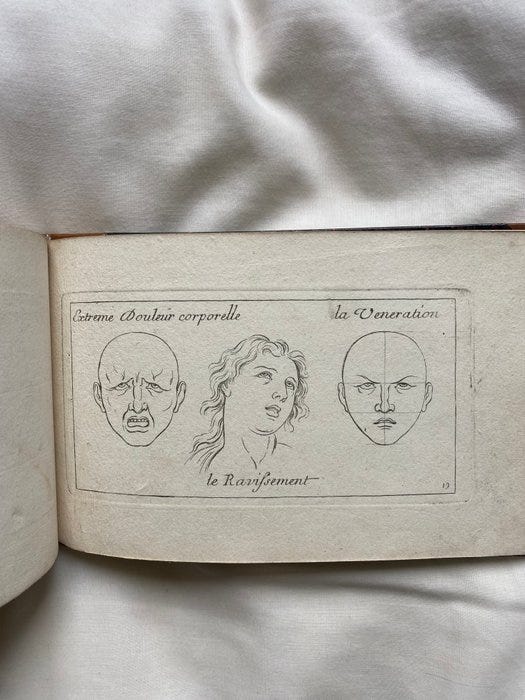 Extreme Douleur corporelle
la Veneration
le Raviſsement
19